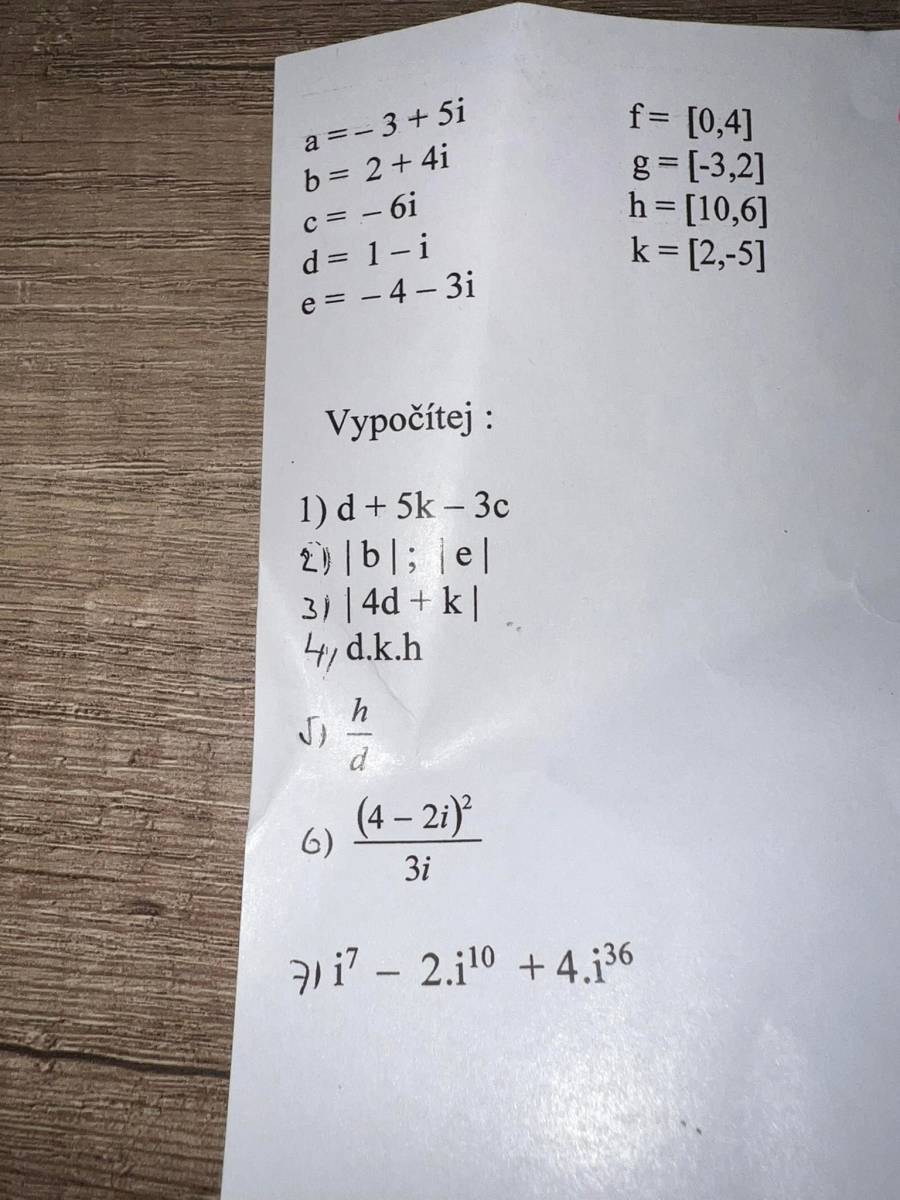 a = – 3 + 5i
b = 2 + 4i
c = – 6i
d = 1 – i
e = – 4 – 3i
f = [0,4]
g = [-3,2]
h = [10,6]
k = [2,-5]
Vypočítej :
1) d + 5k – 3c
2) | b | ; | e |
3) | 4d + k |
4) d.k.h
5) h/d
6) (4 – 2i)²/3i
7) i⁷ – 2.i¹⁰ + 4.i³⁶